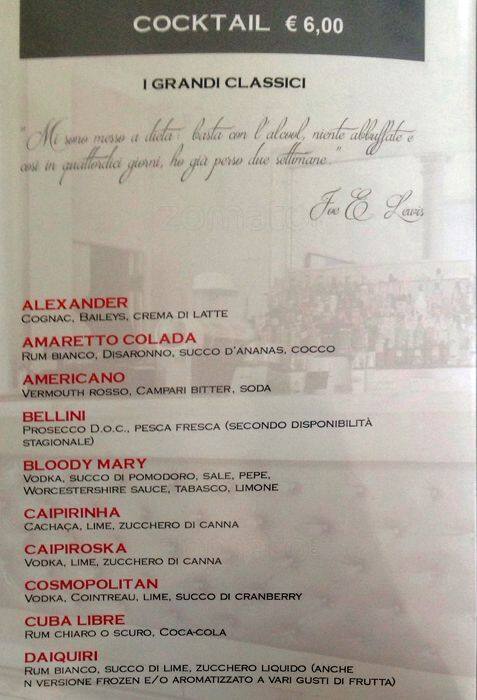 COCKTAIL € 6,00
I GRANDI CLASSICI
"Mi sono messo a dieta: basta con l'alcool, niente abbuffate e
così in quattordici giorni, ho già perso due settimane."
Joe E. Lewis
ALEXANDER
COGNAC, BAILEYS, CREMA DI LATTE
AMARETTO COLADA
RUM BIANCO, DISARONNO, SUCCO D'ANANAS, COCCO
AMERICANO
VERMOUTH ROSSO, CAMPARI BITTER, SODA
BELLINI
PROSECCO D.O.C., PESCA FRESCA (SECONDO DISPONIBILITÀ
STAGIONALE)
BLOODY MARY
VODKA, SUCCO DI POMODORO, SALE, PEPE,
WORCESTERSHIRE SAUCE, TABASCO, LIMONE
CAIPIRINHA
CACHAÇA, LIME, ZUCCHERO DI CANNA
CAIPIROSKA
VODKA, LIME, ZUCCHERO DI CANNA
COSMOPOLITAN
VODKA, COINTREAU, LIME, SUCCO DI CRANBERRY
CUBA LIBRE
RUM CHIARO O SCURO, COCA-COLA
DAIQUIRI
RUM BIANCO, SUCCO DI LIME, ZUCCHERO LIQUIDO (ANCHE
N VERSIONE FROZEN E/O AROMATIZZATO A VARI GUSTI DI FRUTTA)